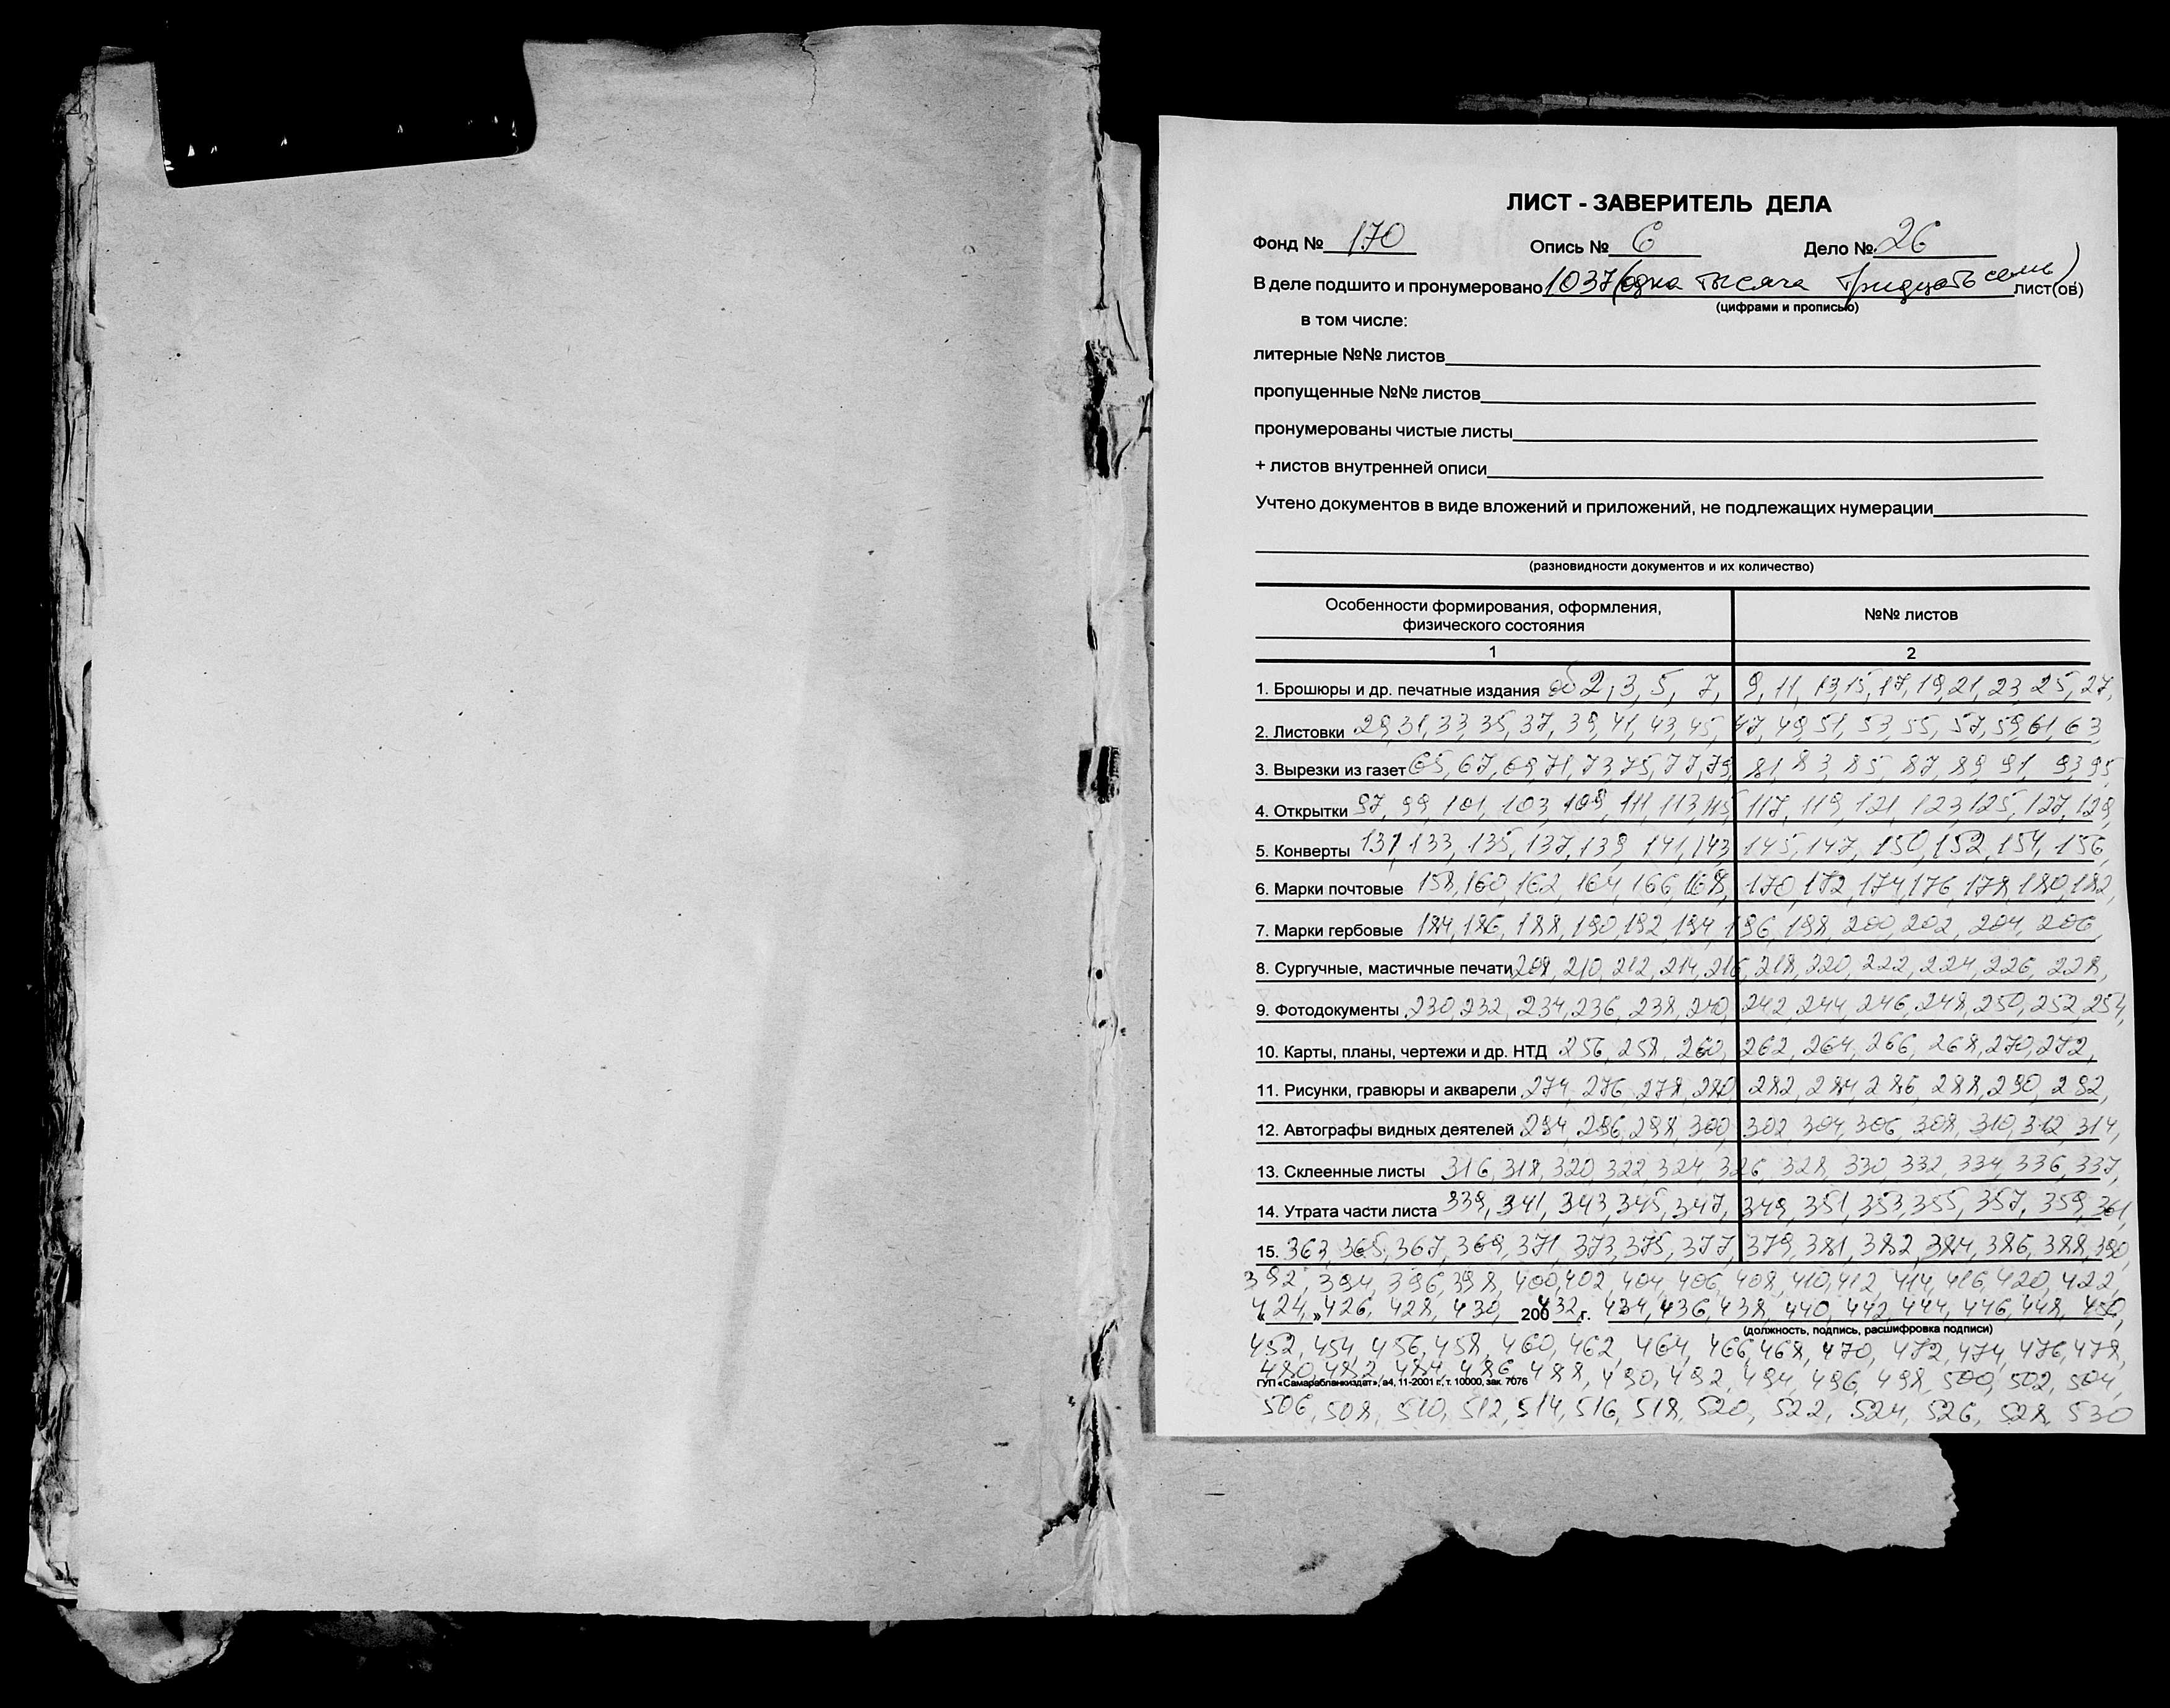 ЛИСТ - ЗАВЕРИТЕЛЬ ДЕЛА
Фонд № 170 Опись № 6 Дело № 26
В деле подшито и пронумеровано 1037 (одна тысяча тридцать семь) лист(ов)
(цифрами и прописью)
в том числе:
литерные №№ листов
пропущенные №№ листов
пронумерованы чистые листы
+ листов внутренней описи
Учтено документов в виде вложений и приложений, не подлежащих нумерации
(разновидности документов и их количество)
Особенности формирования, оформления, физического состояния №№ листов
1 2
1. Брошюры и др. печатные издания об 2, 3, 5, 7, 9, 11, 13, 15, 17, 19, 21, 23, 25, 27,
2. Листовки 29, 31, 33, 35, 37, 39, 41, 43, 45, 47, 49, 51, 53, 55, 57, 59, 61, 63,
3. Вырезки из газет 65, 67, 69, 71, 73, 75, 77, 79, 81, 83, 85, 87, 89, 91, 93, 95,
4. Открытки 97, 99, 101, 103, 109, 111, 113, 115, 117, 119, 121, 123, 125, 127, 129,
5. Конверты 131, 133, 135, 137, 139, 141, 143, 145, 147, 150, 152, 154, 156,
6. Марки почтовые 158, 160, 162, 164, 166, 168, 170, 172, 174, 176, 178, 180, 182,
7. Марки гербовые 184, 186, 188, 190, 192, 194, 196, 198, 200, 202, 204, 206,
8. Сургучные, мастичные печати 208, 210, 212, 214, 216, 218, 220, 222, 224, 226, 228,
9. Фотодокументы 230, 232, 234, 236, 238, 240, 242, 244, 246, 248, 250, 252, 254,
10. Карты, планы, чертежи и др. НТД 256, 258, 260, 262, 264, 266, 268, 270, 272,
11. Рисунки, гравюры и акварели 274, 276, 278, 280, 282, 284, 286, 288, 290, 292,
12. Автографы видных деятелей 294, 296, 298, 300, 302, 304, 306, 308, 310, 312, 314,
13. Склеенные листы 316, 318, 320, 322, 324, 326, 328, 330, 332, 334, 336, 337,
14. Утрата части листа 339, 341, 343, 345, 347, 349, 351, 353, 355, 357, 359, 361,
15. 363, 365, 367, 369, 371, 373, 375, 377, 379, 381, 382, 384, 386, 388, 390,
392, 394, 396, 398, 400, 402, 404, 406, 408, 410, 412, 414, 416, 420, 422,
« 424, » 426, 428, 430, 200 432, г. 434, 436, 438, 440, 442, 444, 446, 448, 450,
(должность, подпись, расшифровка подписи)
452, 454, 456, 458, 460, 462, 464, 466, 468, 470, 472, 474, 476, 478,
480, 482, 484, 486, 488, 490, 492, 494, 496, 498, 500, 502, 504,
ГУП «Самарабланкиздат», а4, 11-2001 г., т. 10000, зак. 7076
506, 508, 510, 512, 514, 516, 518, 520, 522, 524, 526, 528, 530